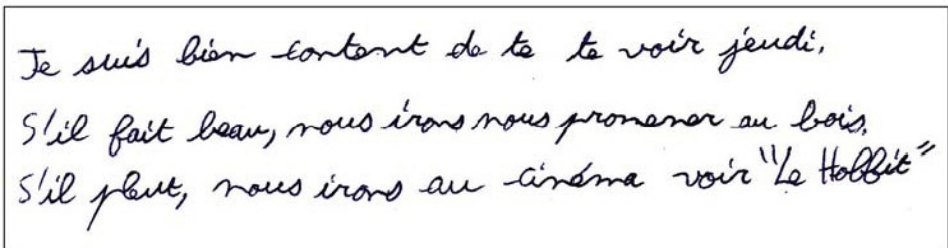 Je suis bien content de te te voir jeudi.
S'il fait beau, nous irons nous promener au bois.
S'il pleut, nous irons au cinéma voir "Le Hobbit"